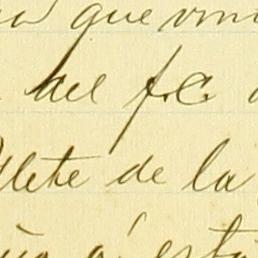 que vini
del f.c.
llete de la
á esta